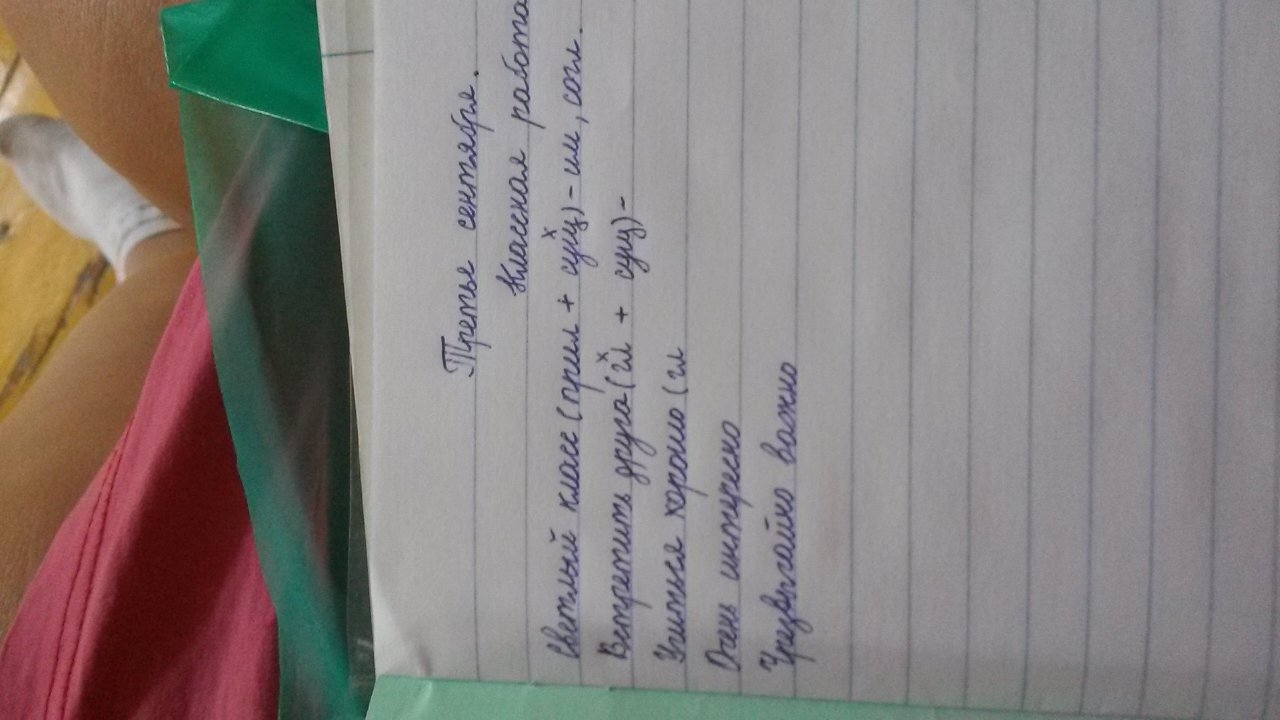 Третье сентября.
Классная работа
Светлый класс (прил + сущ) - им, согл.
Встретить друга (гл + сущ) -
Учиться хорошо (гл
Очень интересно
Чрезвычайно важно